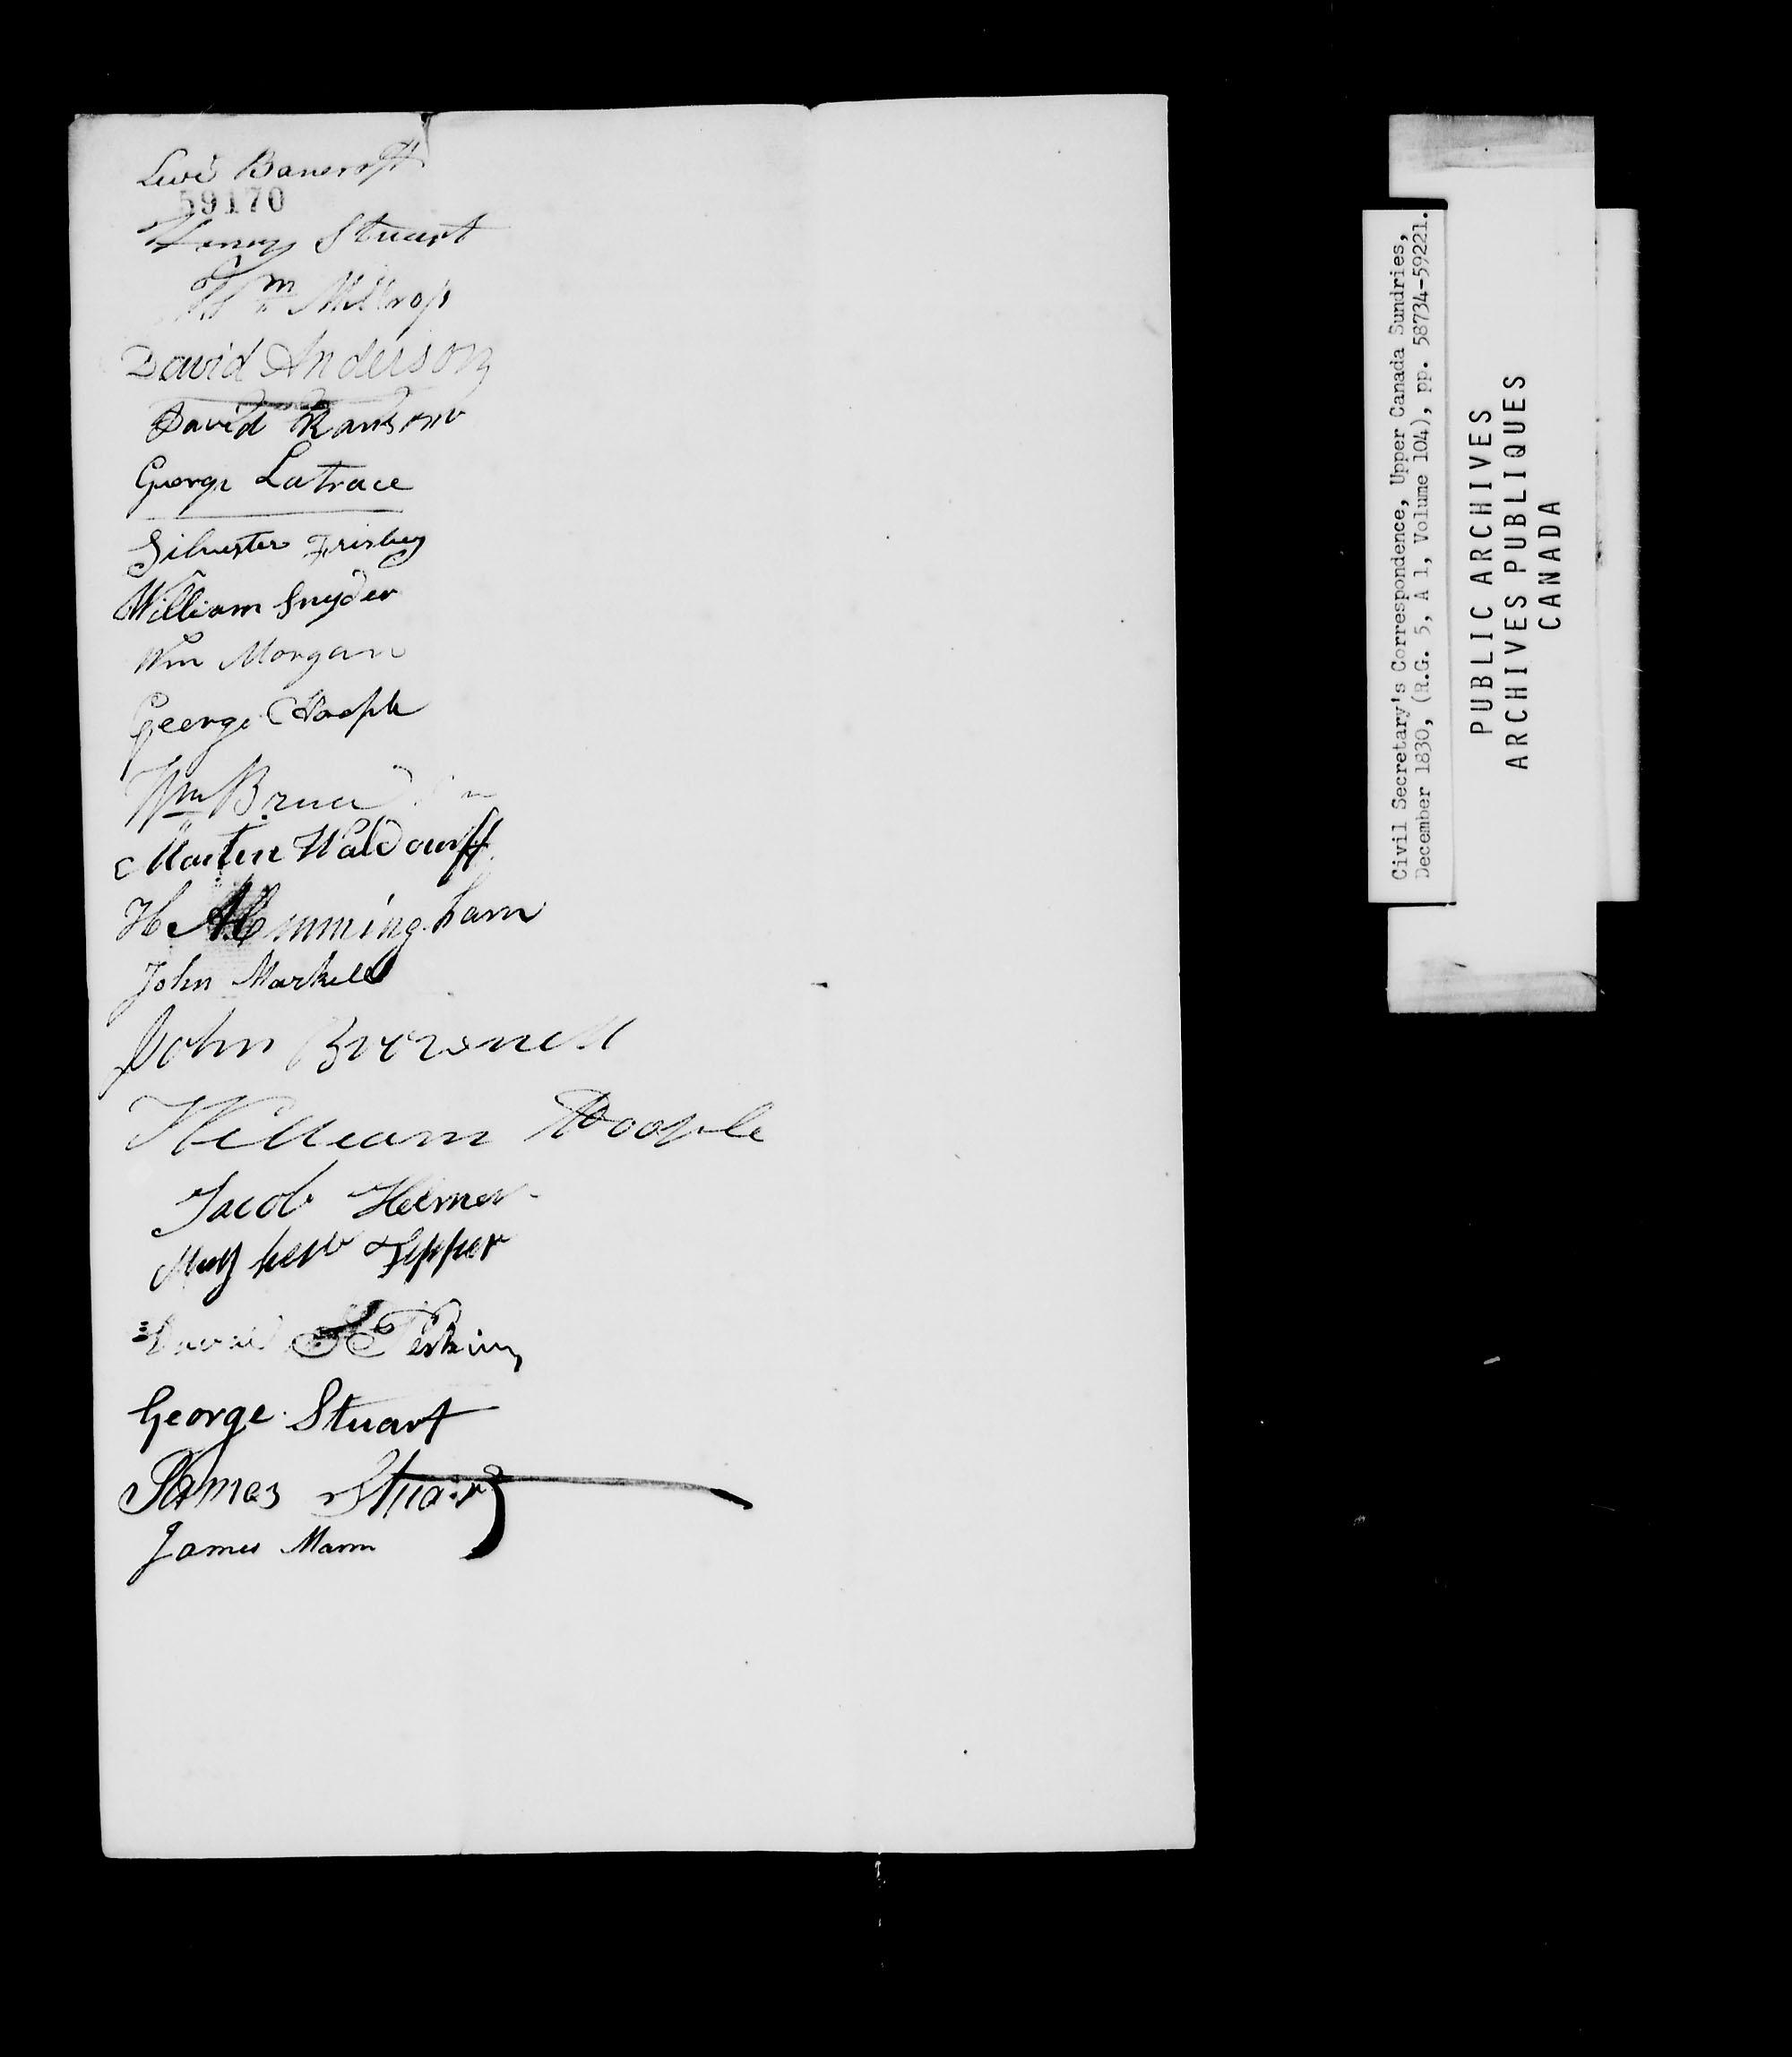 Levi Bancroft
59170
Henry Stuart
Wm Miltrop
David Anderson
David Ransom
George Latrace
Silvester Frisbey
William Snyder
Wm Morgan
George Hoople
Wm Bruce
Martin Waldourff
H Hemmingham
John Markell
John Brownell
William Hoople
Jacob Helmer
Tepper
Perkins
George Stuart
James Stuart
James Mann
Civil Secretary's Correspondence, Upper Canada Sundries,
December 1830, (R.G. 5, A 1, Volume 104), pp. 58734-59221.
PUBLIC ARCHIVES
ARCHIVES PUBLIQUES
CANADA